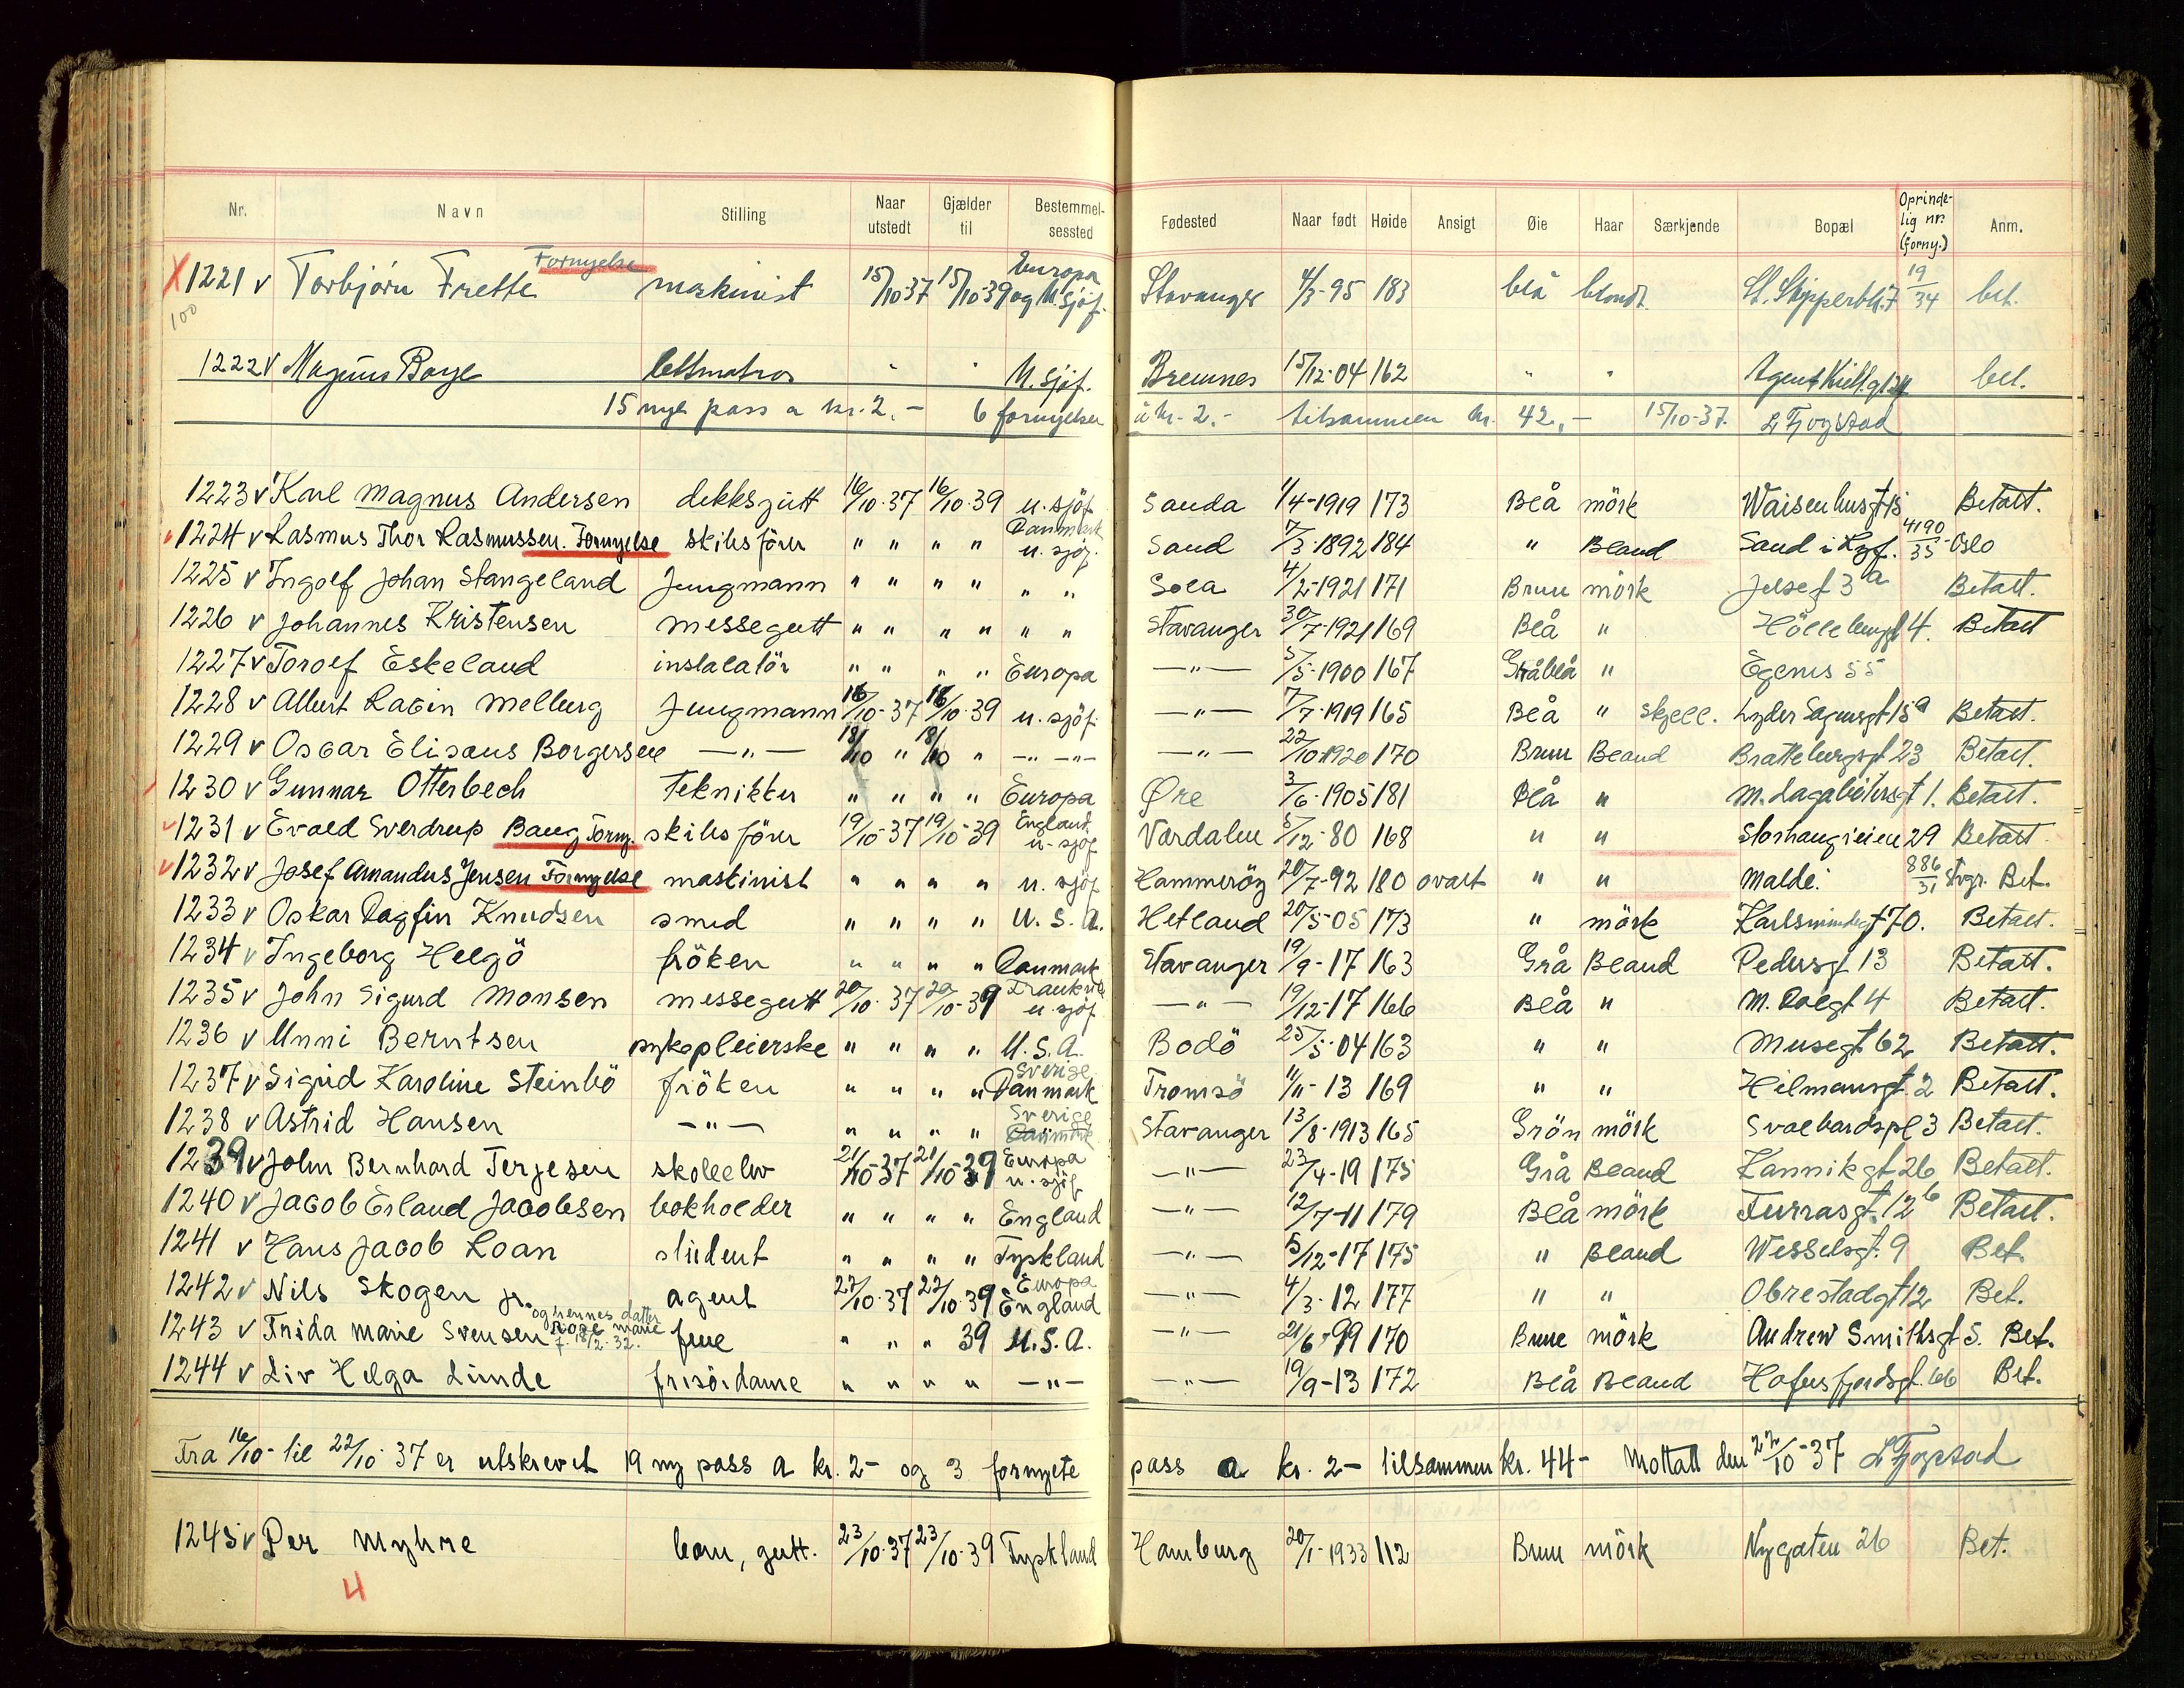 Nr. Navn Stilling Naar utstedt Gjælder til Bestemmelsessted Fødested Naar født Høide Ansigt Øie Haar Særkjende Bopæl Oprindelig nr. (forny.) Anm.
1221 v Torbjørn Frette Fornyelse maskinist 15/10 37 15/10-39 Europa og U. sjøf. Stavanger 4/3-95 183 blå blondt St. Skipperbk. 7 19/34 bet.
100
1222 v Magnus Boye lettmatros " " U. sjøf. Bremnes 15/12-04 162 " " Agent Kiell.gt bet.
15 nye pass a kr. 2.- 6 fornyelser à kr. 2.- tilsammen kr. 42,- 15/10-37. L Fjogstad
1223 v Karl Magnus Andersen dekksgutt 16/10-37 16/10-39 u. sjöf. Sauda 1/4-1919 173 Blå mörk Waisenhusgt 15 Betalt.
1224 v Rasmus Thor Rasmussen. Fornyelse skibsförer " " " " Danmark u. sjöf. Sand 7/3-1892 184 " Bland Sand i Ryf. 4190/35 Oslo
1225 v Ingolf Johan Stangeland Jungmann " " " " " " Sola 4/2-1921 171 Brun mörk Jelsegt 3a Betalt.
1226 v Johannes Kristensen messegutt " " " " " " Stavanger 30/7-1921 169 Blå " 4. Betalt
1227 v Torolf Eskeland instalatör " " " " Europa —"— 5/5-1900 167 Gråblå " Egenes 55
1228 v Albert Ragin Melberg Jungmann 16/10-37 16/10-39 u. sjöf. —"— 7/7-1919 165 Blå " skjell. Lyder Sagensgt 15a Betalt.
1229 v Oscar Elisæus Borgersen —"— 18/10 " 18/10 " —"— —"— —"— 22/10-1920 170 Brun Bland Brattebergsgt 23 Betalt.
1230 v Gunnar Otterbech Tekniker " " " " Europa Øre 3/6-1905 181 Blå " M. Lagabötersgt 1. Betalt.
1231 v Evald Sverdrup Baug Forny. skibsförer 19/10-37 19/10-39 England u. sjöf Værdalen 5/12-80 168 " " Storhaugveien 29 Betalt
1232 v Josef Amandus Jensen Fornyelse maskinist " " " " u. sjöf Hammeröy 20/7-92 180 ovalt " " Malde. 886/31 Svgr. Bet.
1233 v Oskar Dagfin Knudsen smed " " " " U. S. A. Hetland 20/5-05 173 " mörk Karlsmindegt 70. Betalt.
1234 v Ingeborg Helgö fröken " " " " Danmark Stavanger 19/9-17 163 Grå Bland Pedersgt 13 Betalt.
1235 v John Sigurd Monsen messegutt 20/10-37 20/10-39 Frankrike u. sjöf —"— 19/12-17 166 Blå " M. Dalgt 4 Betalt.
1236 v Unni Berntsen sykepleierske " " " " U. S. A. Bodö 25/5-04 163 " " Musegt 62 Betalt.
1237 v Sigrid Karoline Steinbö fröken " " " " Sverige Danmark Tromsö 11/11-13 169 " " Hilmansgt. 2 Betalt.
1238 v Astrid Hansen —"— " " " " Sverige Danmark Stavanger 13/8-1913 165 Grön mörk Svalbardspl 3 Betalt.
1239 v John Bernhard Terjesen skoleelev 21/10-37 21/10-39 Europa u. sjöf —"— 23/4-19 175 Grå Bland Kannikgt 26 Betalt.
1240 v Jacob Erland Jacobsen bokholder " " " " England —"— 12/7-11 179 Blå mörk Furrasgt. 12b Betalt.
1241 v Hans Jacob Roan student " " " " Tyskland —"— 5/12-17 175 " Bland Wesselsgt. 9 Bet.
1242 v Nils Skogen jr. agent 22/10-37 22/10-39 Europa England —"— 4/3-12 177 " " Obrestadgt 12 Bet.
1243 v Frida Marie Svensen og hennes datter Marie f. 18/2-32. frue " " " 39 U. S. A. —"— 21/6-99 170 Brune mörk Andrew Smithsgt 5. Bet.
1244 v Liv Helga Lunde frisördame " " " " —"— —"— 19/9-13 172 Blå Bland Hafrsfjordsgt. 66 Bet.
Fra 16/10- til 22/10-37 er utskrevet 19 ny pass a kr. 2- og 3 fornyete pass a kr. 2- tilsammen kr. 44- Mottatt den 22/10-37 L Fjogstad
1245 v Per Myhre barn, gutt. 23/10-37 23/10-39 Tyskland Hamburg 20/1-1933 112 Brun mörk Nygaten 26 Bet.
4